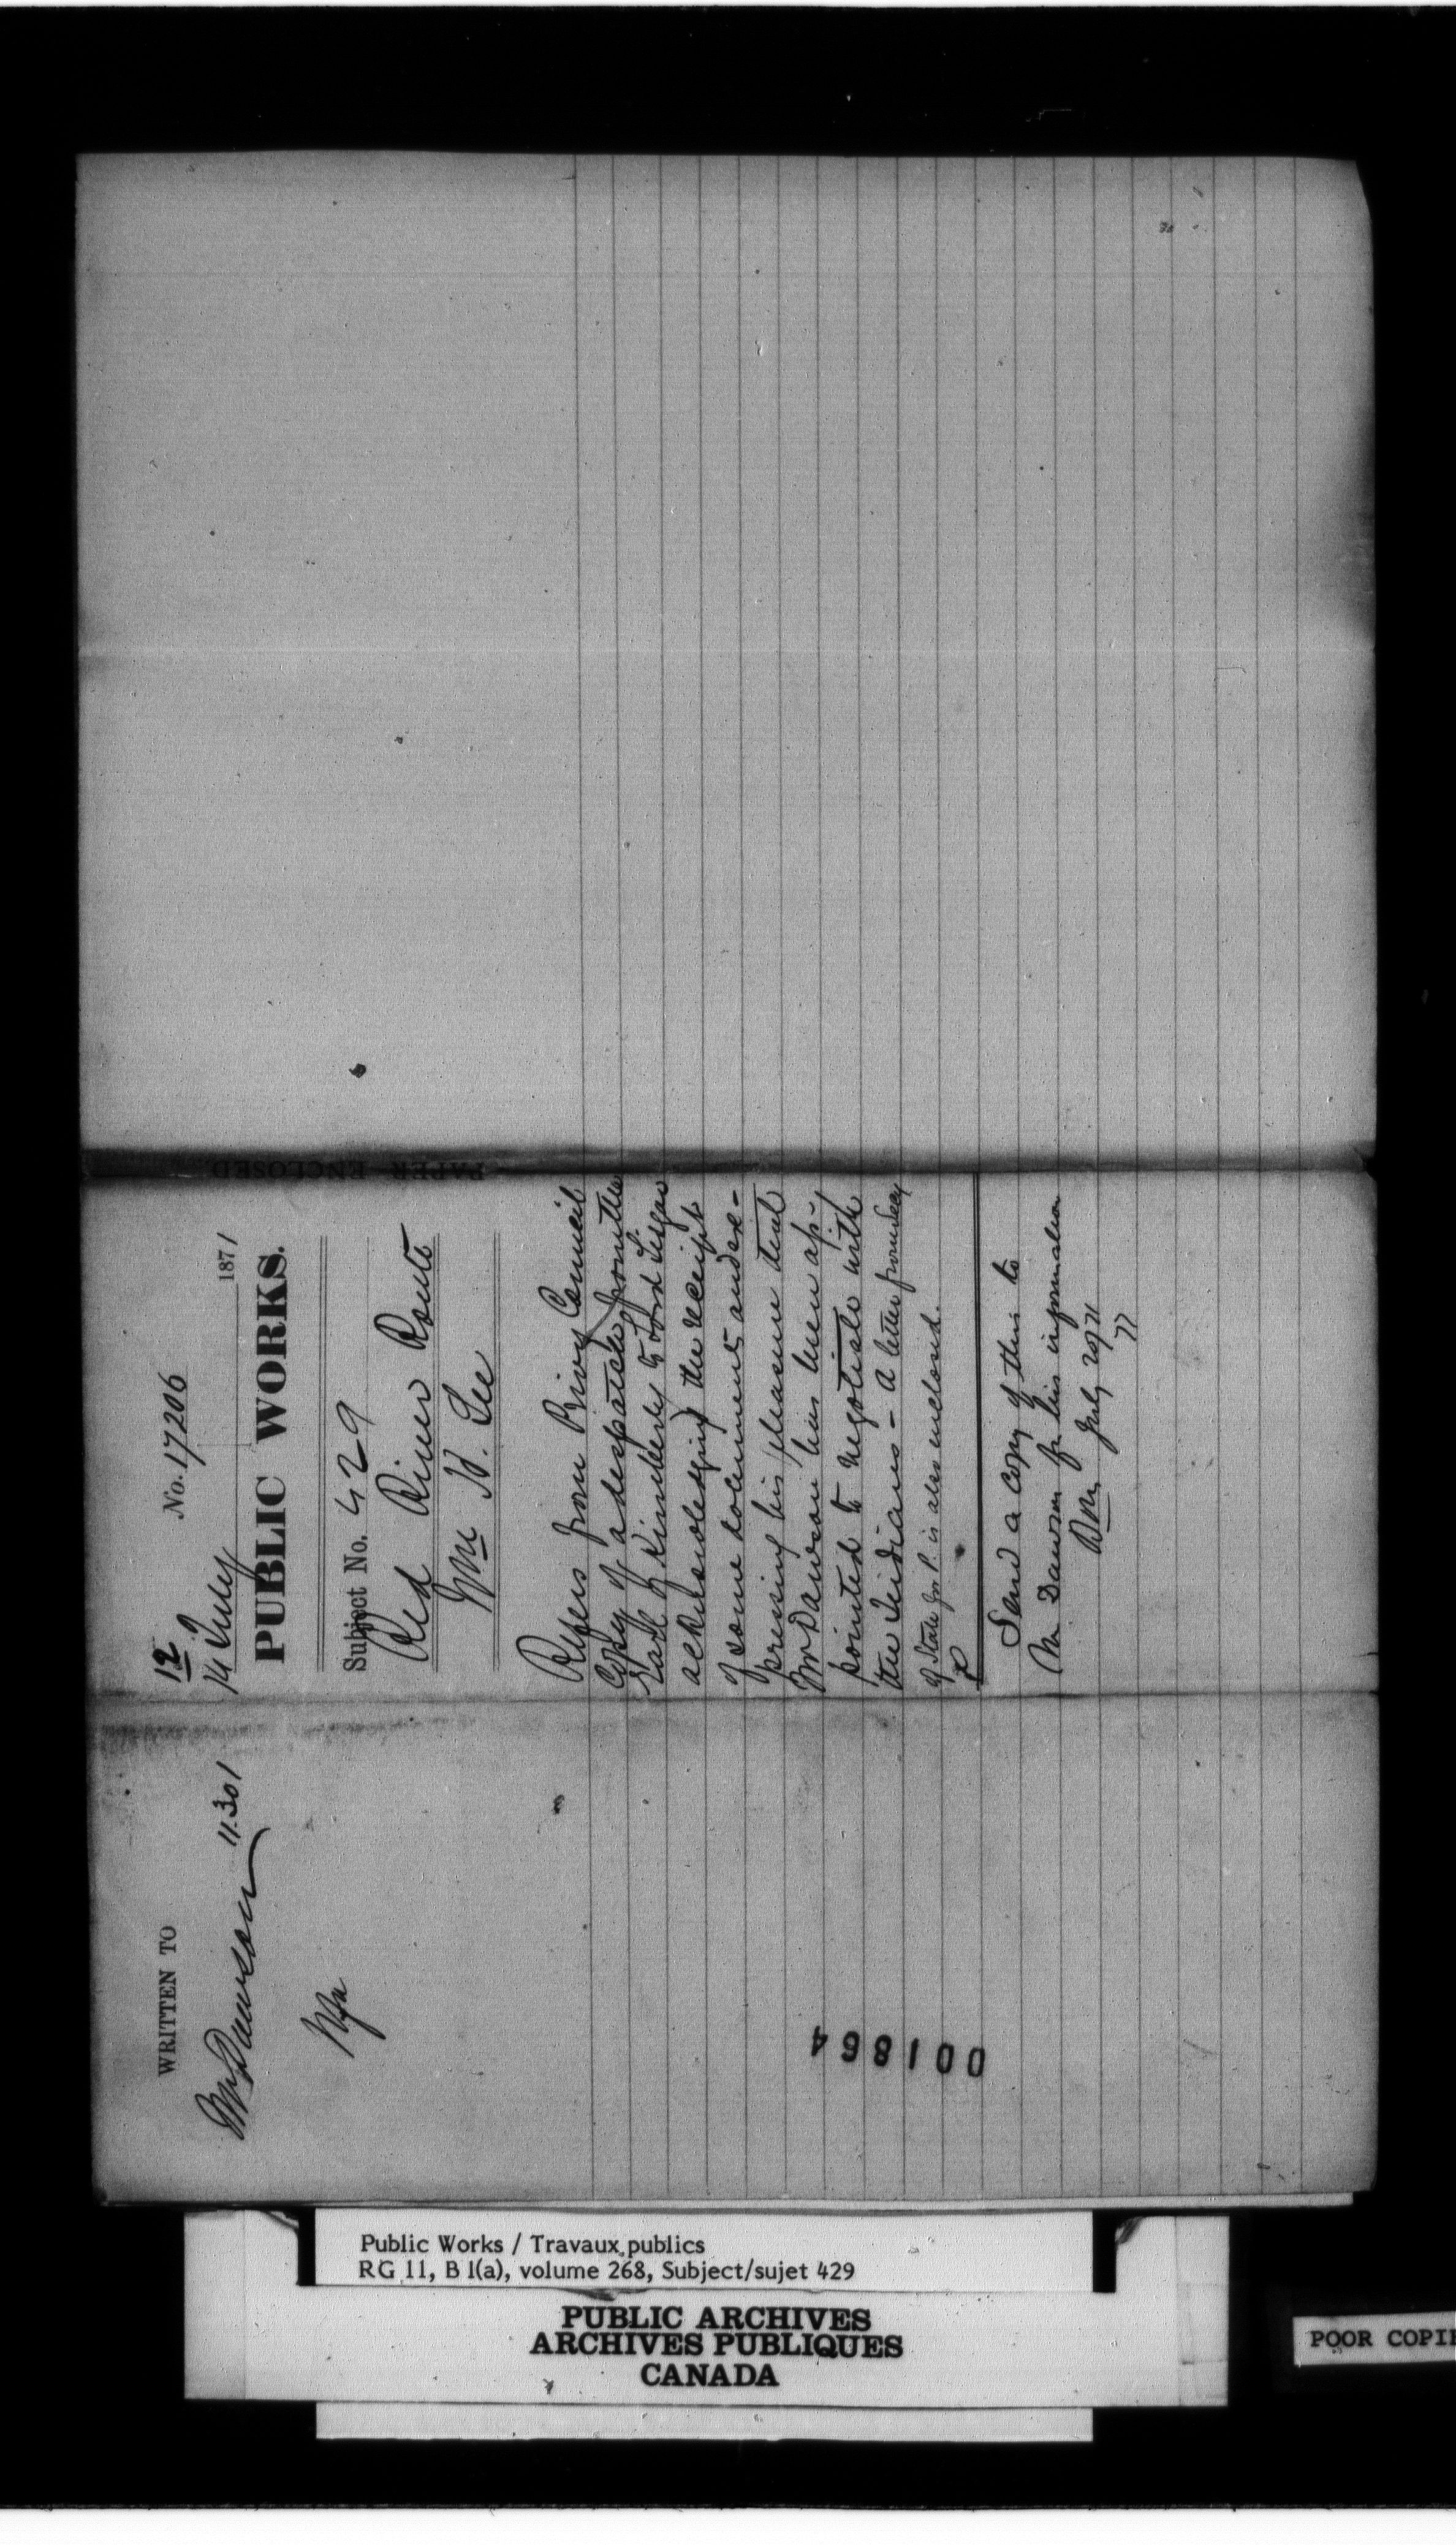 WRITTEN TO
Mr Dawson 11.301
12
No. 17206
14 July 1871
PUBLIC WORKS.
Subject No. 429
Red River Route
Wm H. Lee
Refers from Privy Council
Copy of a despatch from the
Earl of Kimberly to Lord Lisgar
acknowledging the receipt
of some documents and ex-
pressing his pleasure that
Mr Dawson has been ap-
pointed to negotiate with
the Indians - A letter from Secy
of State for P. is also enclosed.
Send a copy of this to
Mr Dawson for his information
July 20/71
PAPER ENCLOSED
001864
Public Works / Travaux publics
RG 11, B 1(a), volume 268, Subject/sujet 429
PUBLIC ARCHIVES
ARCHIVES PUBLIQUES
CANADA
POOR COPIE